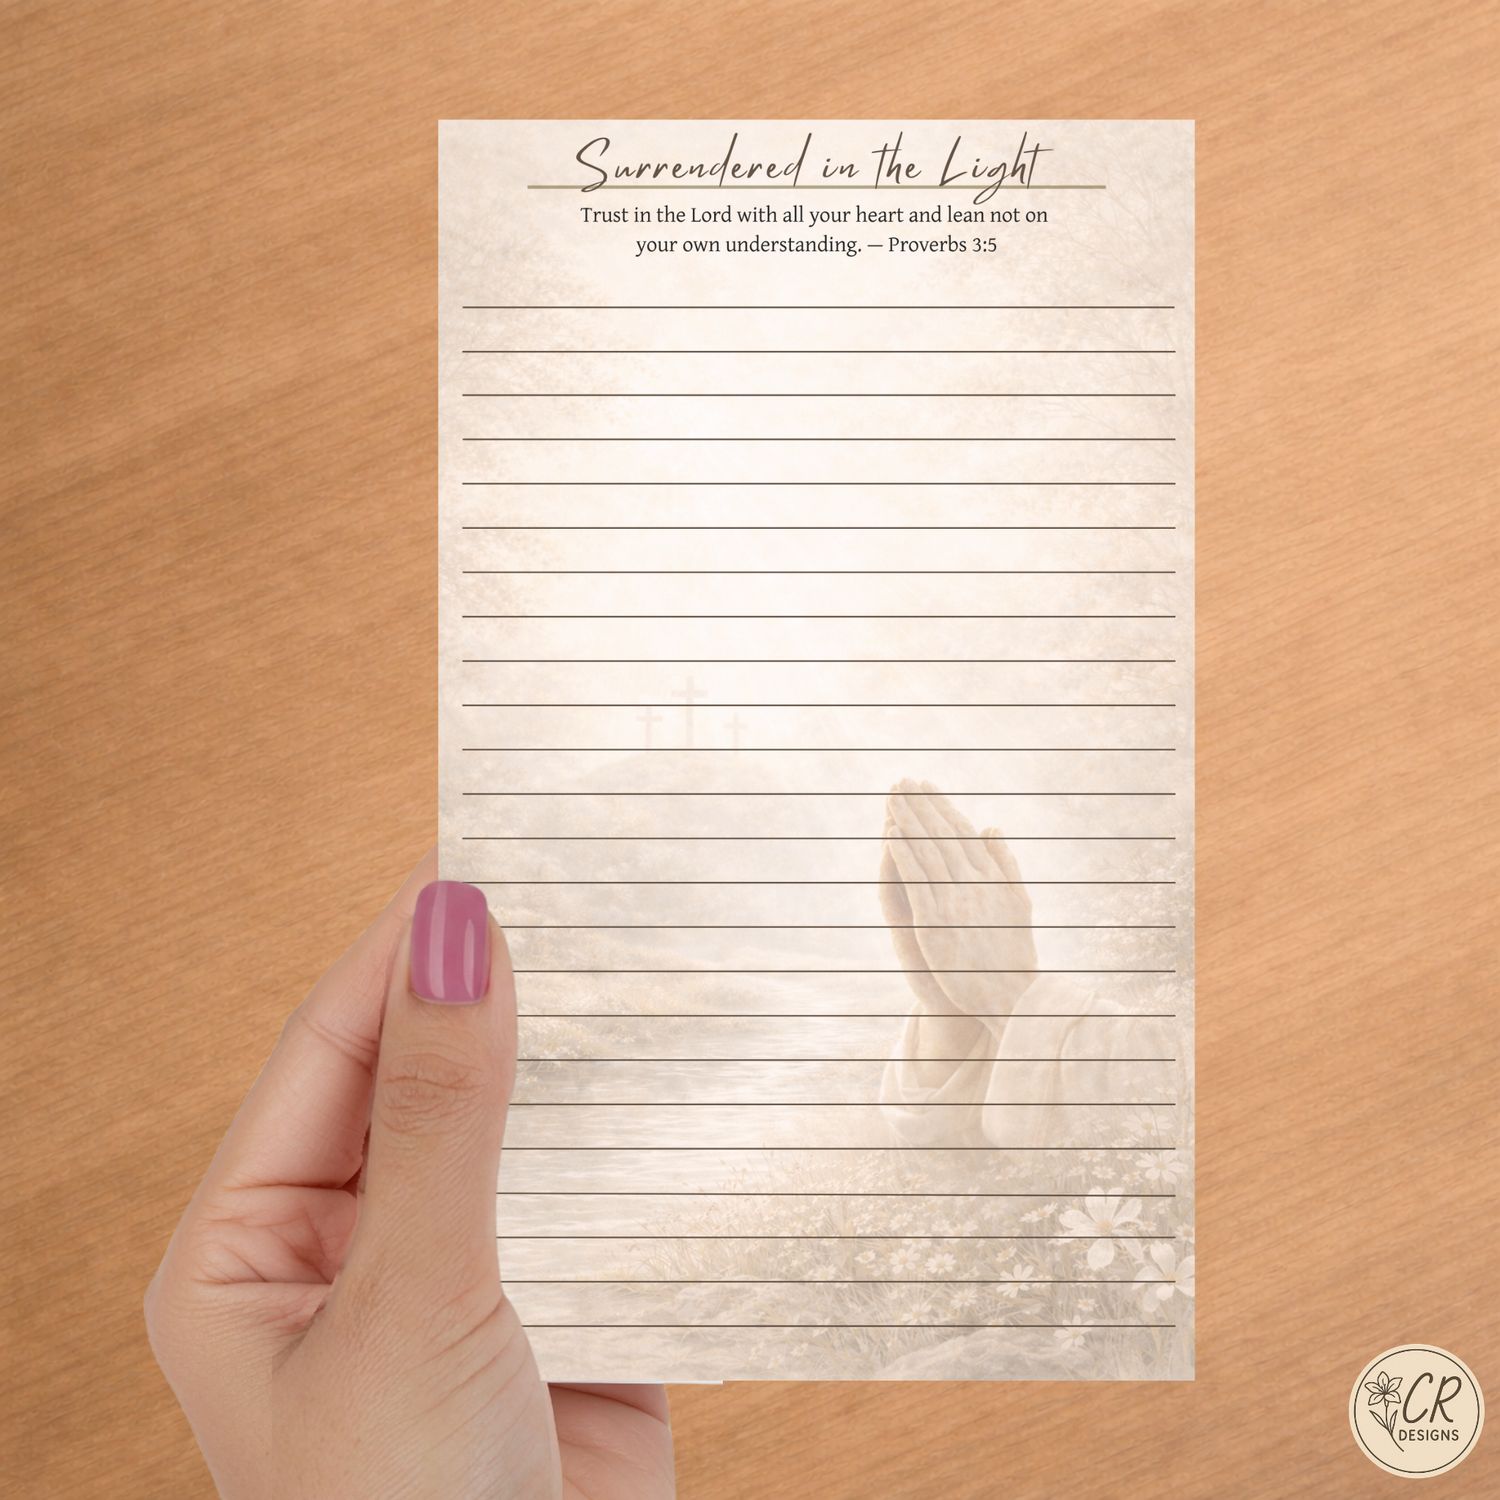 Surrendered in the Light
Trust in the Lord with all your heart and lean not on
your own understanding. — Proverbs 3:5
CR
DESIGNS